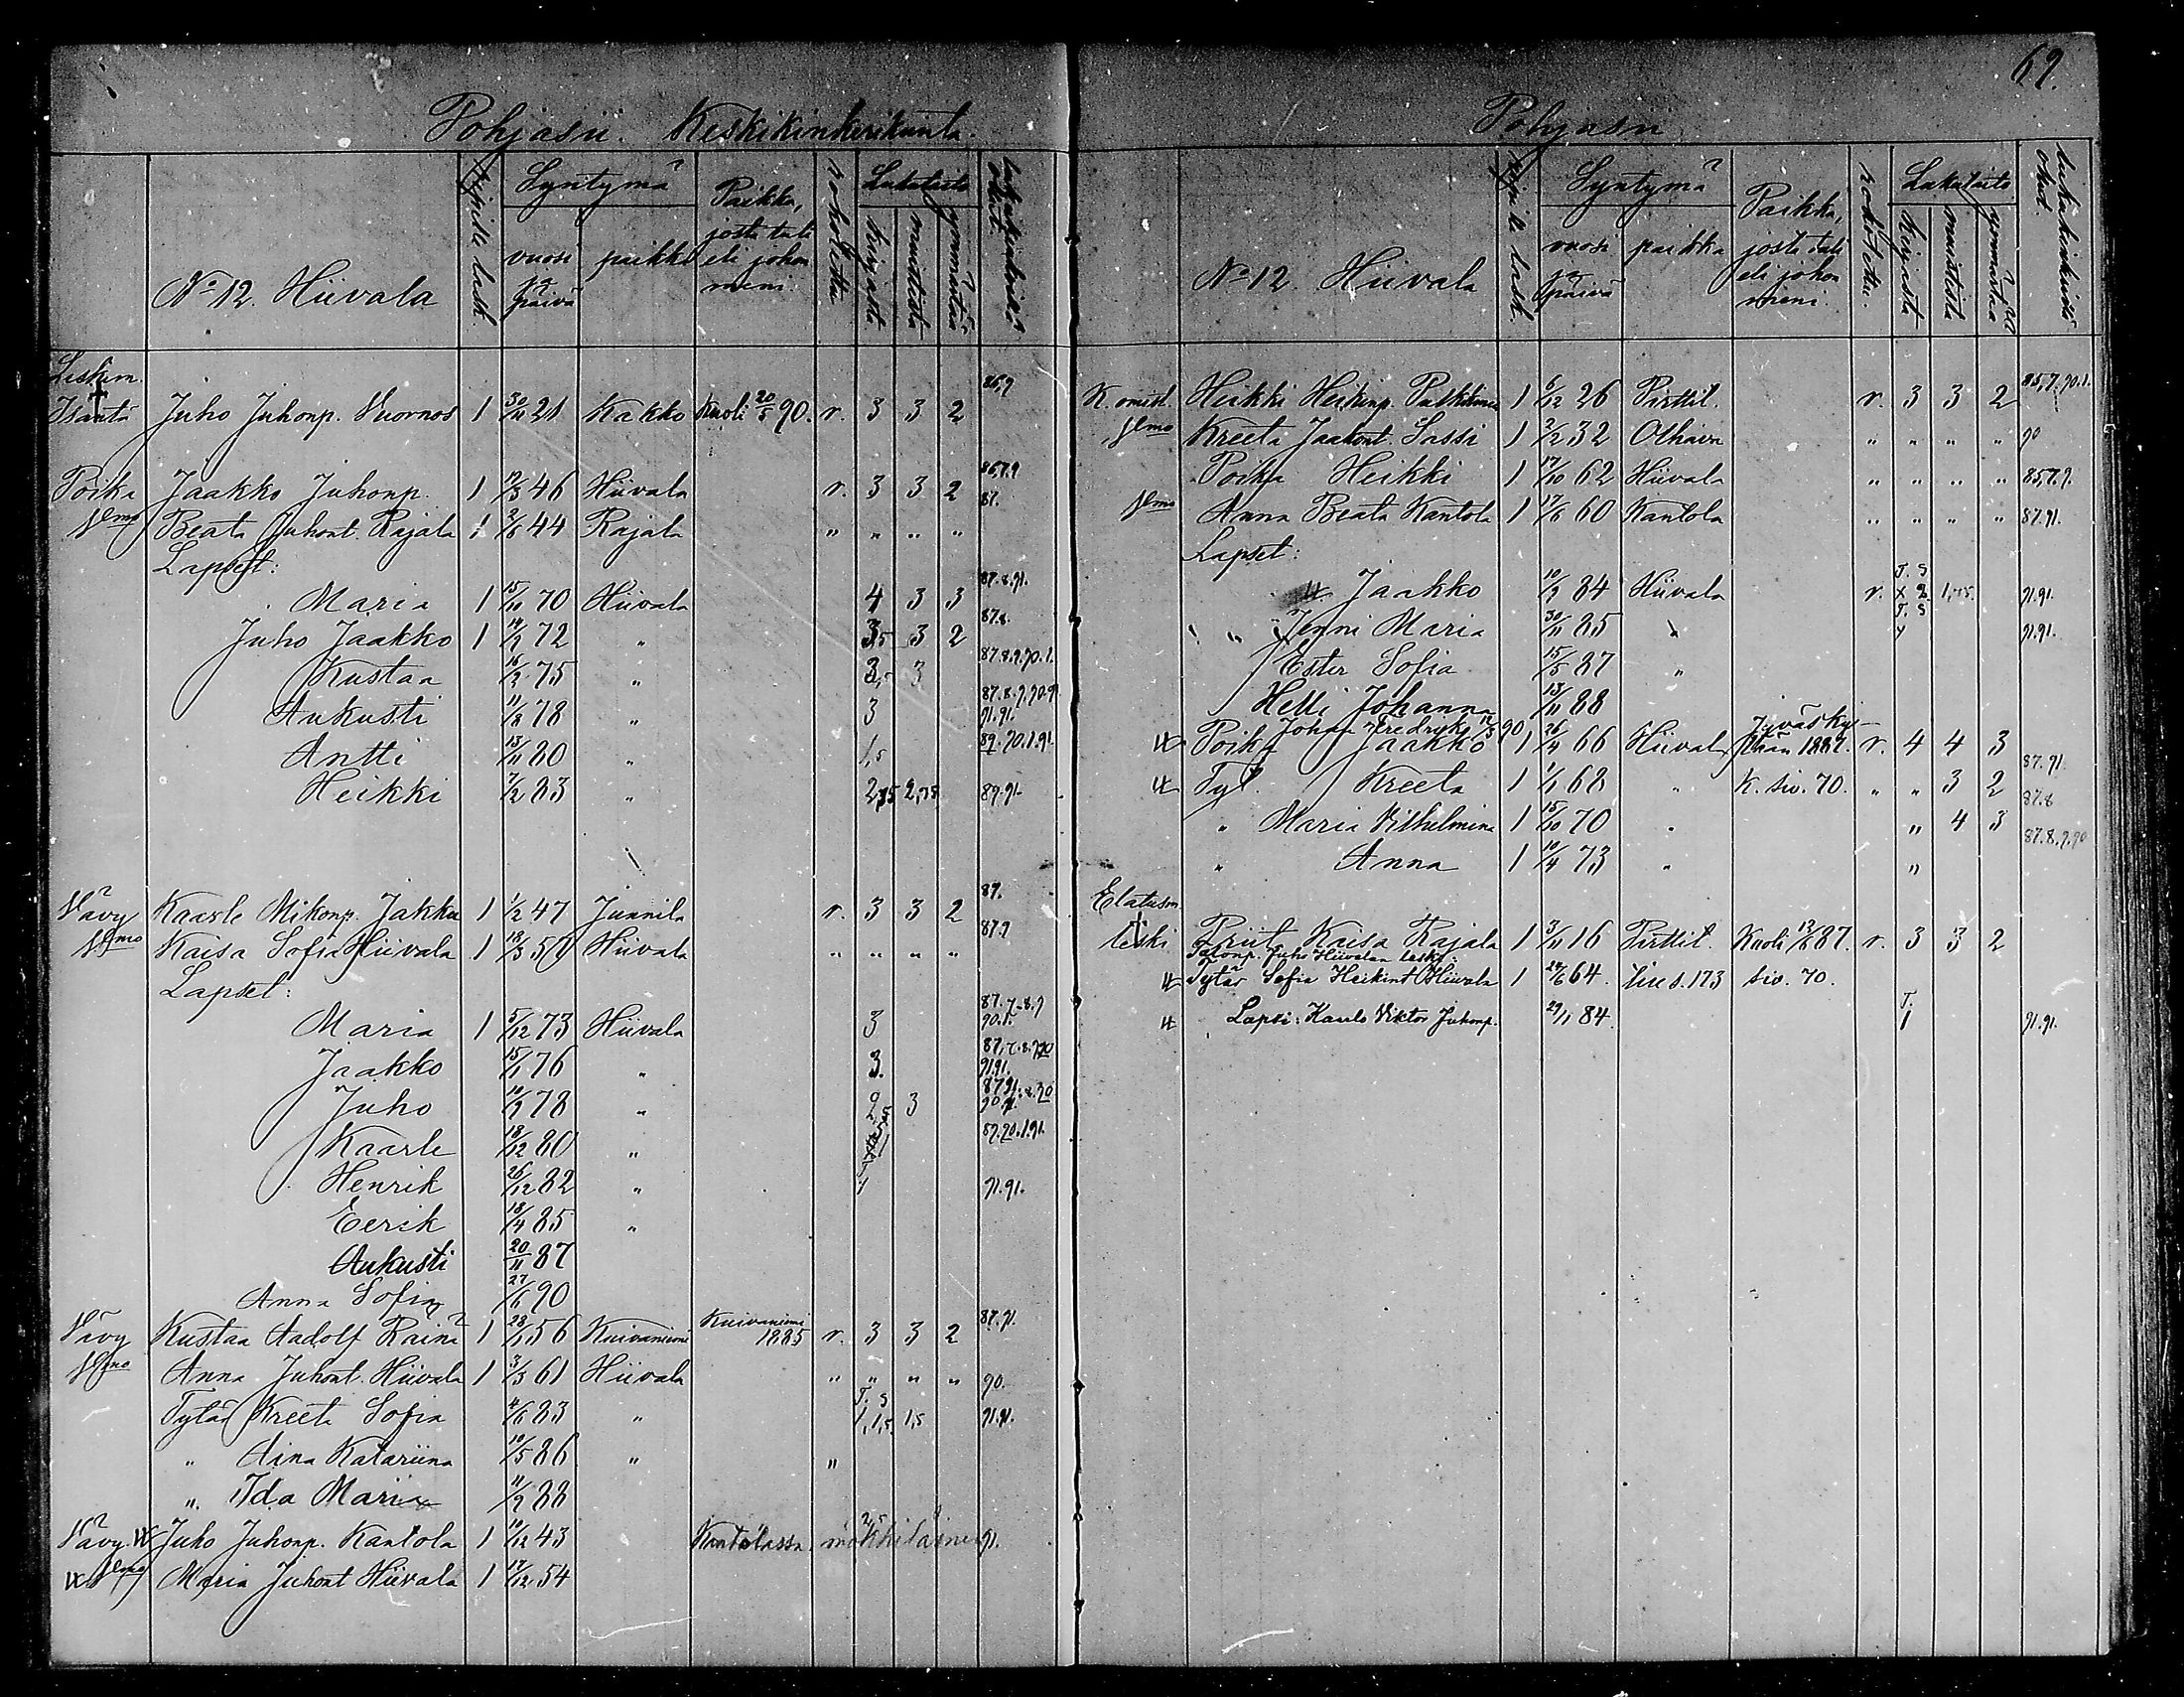 69.
Pohjasii. Keskikinkerikunta.
N:o 12. Hiivala
Ripille lask.
Syntymä
vuosi ja päivä
paikka
Paikka, josta tuli eli johon meni.
rokotettu
Lukutaito
kirjasta
muistista
ymmärtää
Leskim.
Isäntä Juho Juhonp. Vuornos 1 30/11 21 Kakko Kuoli 20/5 90. r. 3 3 2 85,9
Poika Jaakko Juhonp. 1 46 Hiivala r. 3 3 2
vmo Beata Juhont. Rajala 1 44 Rajala " " " " 87.
Lapset:
Maria 1 15/11 70 Hiivala 4 3 3 87.8.91.
Juho Jaakko 1 72 " 3,5 3 2 87.8.
Kustaa 16/2 75 " 3 87.8.9.90.1.
Aukusti 78 " 3 91.91.
Antti 13/11 80 " 1,5 89.90.1.91.
Heikki 7/2 83 " 2,75 2,75 89.91.
Vävy Kaarle Mikonp. Jakku 1 1/2 47 Junnila r. 3 3 2 87.
vmo Kaisa Sofia Hiivala 1 18/3 Hiivala " " " " 87.9
Lapset:
Maria 1 5/12 73 Hiivala 3 87.7.8.9 90.1.
Jaakko 15/1 76 " 3. 91.91.
Juho 10/9 78 " 2,5 3
Kaarle 18/12 80 " 89.90.1.91.
Henrik 26/12 82 " 1 91.91.
Eerik 18/4 85 "
Aukusti 20/11 87
Anna Sofia 27/6 90
Vävy Kustaa Aadolf Rainä 1 28/1 56 Kuivaniemi Kuivaniemi 1885 r. 3 3 2 87.91.
vmo Anna Juhont. Hiivala 1 3/3 61 Hiivala " " " " 90.
Tytär Kreeta Sofia 4/6 83 " T. S 1,1,5 1,5 91.91.
" Aina Katariina 10/5 86 " "
" Iida Maria 11/9 88
Vävy Juho Juhonp. Kantola 1 10/12 43 Kantolassa mökkiläinen 2,5 91.
vmo Maria Juhont Hiivala 1 17/12 54
Pohjasii
N:o 12. Hiivala
Ripille lask.
Syntymä
vuosi ja päivä
paikka
Paikka, josta tuli eli johon meni.
rokotettu.
Lukutaito
kirjasta
muistista
ymmärtää
K. omist. Heikki Heikinp. 1 6/12 26 Pirttil. r. 3 3 2 85,7.90.1.
vmo Kreeta Jaakont. Sassi 1 2/2 32 Olhava " " " " 90
Poika Heikki 1 17/10 62 Hiivala " " " " 85,7.9.
vmo Anna Beata Kantola 1 17/6 60 Kantola " " " " 87.91.
Lapset:
Jaakko 10/9 84 Hiivala r. T. S x 2 1,75. 91.91.
" Jenni Maria 30/11 85 " T. S 91.91.
Ester Sofia 15/5 87 "
Helli Johanna 13/11 88
Johan Fredrik 90
Poika Jaakko 1 26/4 66 Hiivala Jyväskylään 1887. r. 4 4 3
Tyt. Kreeta 1 1/1 68 " K. siv. 70. " " 3 2 87.91.
" Maria Vilhelmina 1 15/10 70 " " 4 3 87.8
" Anna 1 10/4 73 " " 87.8.9.90
Elatusm.
leski Priit. Kaisa Rajala 1 3/11 16 Pirttil. Kuoli 87. r. 3 3 2
Talonp. Juho Hiivalan leski.
Tytär Sofia Heikint Hiivala 1 64. Siv. 70.
Lapsi: Kaarlo Viktor Juhonp. 84. T. 1 91.91.